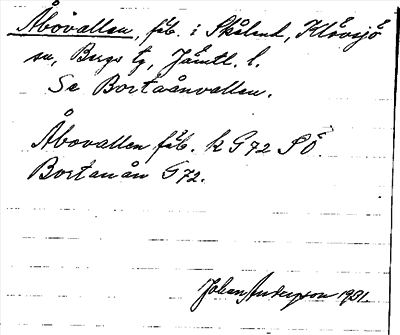 Åbovallen, fäb. i Skåland, Klövsjö
sn, Bergs tg, Jämtl. l.
Se Bortaånvallen.
Åbovallen fäb. k G72 SÖ
Bortanån G72.
Johan Anderzson 1931.